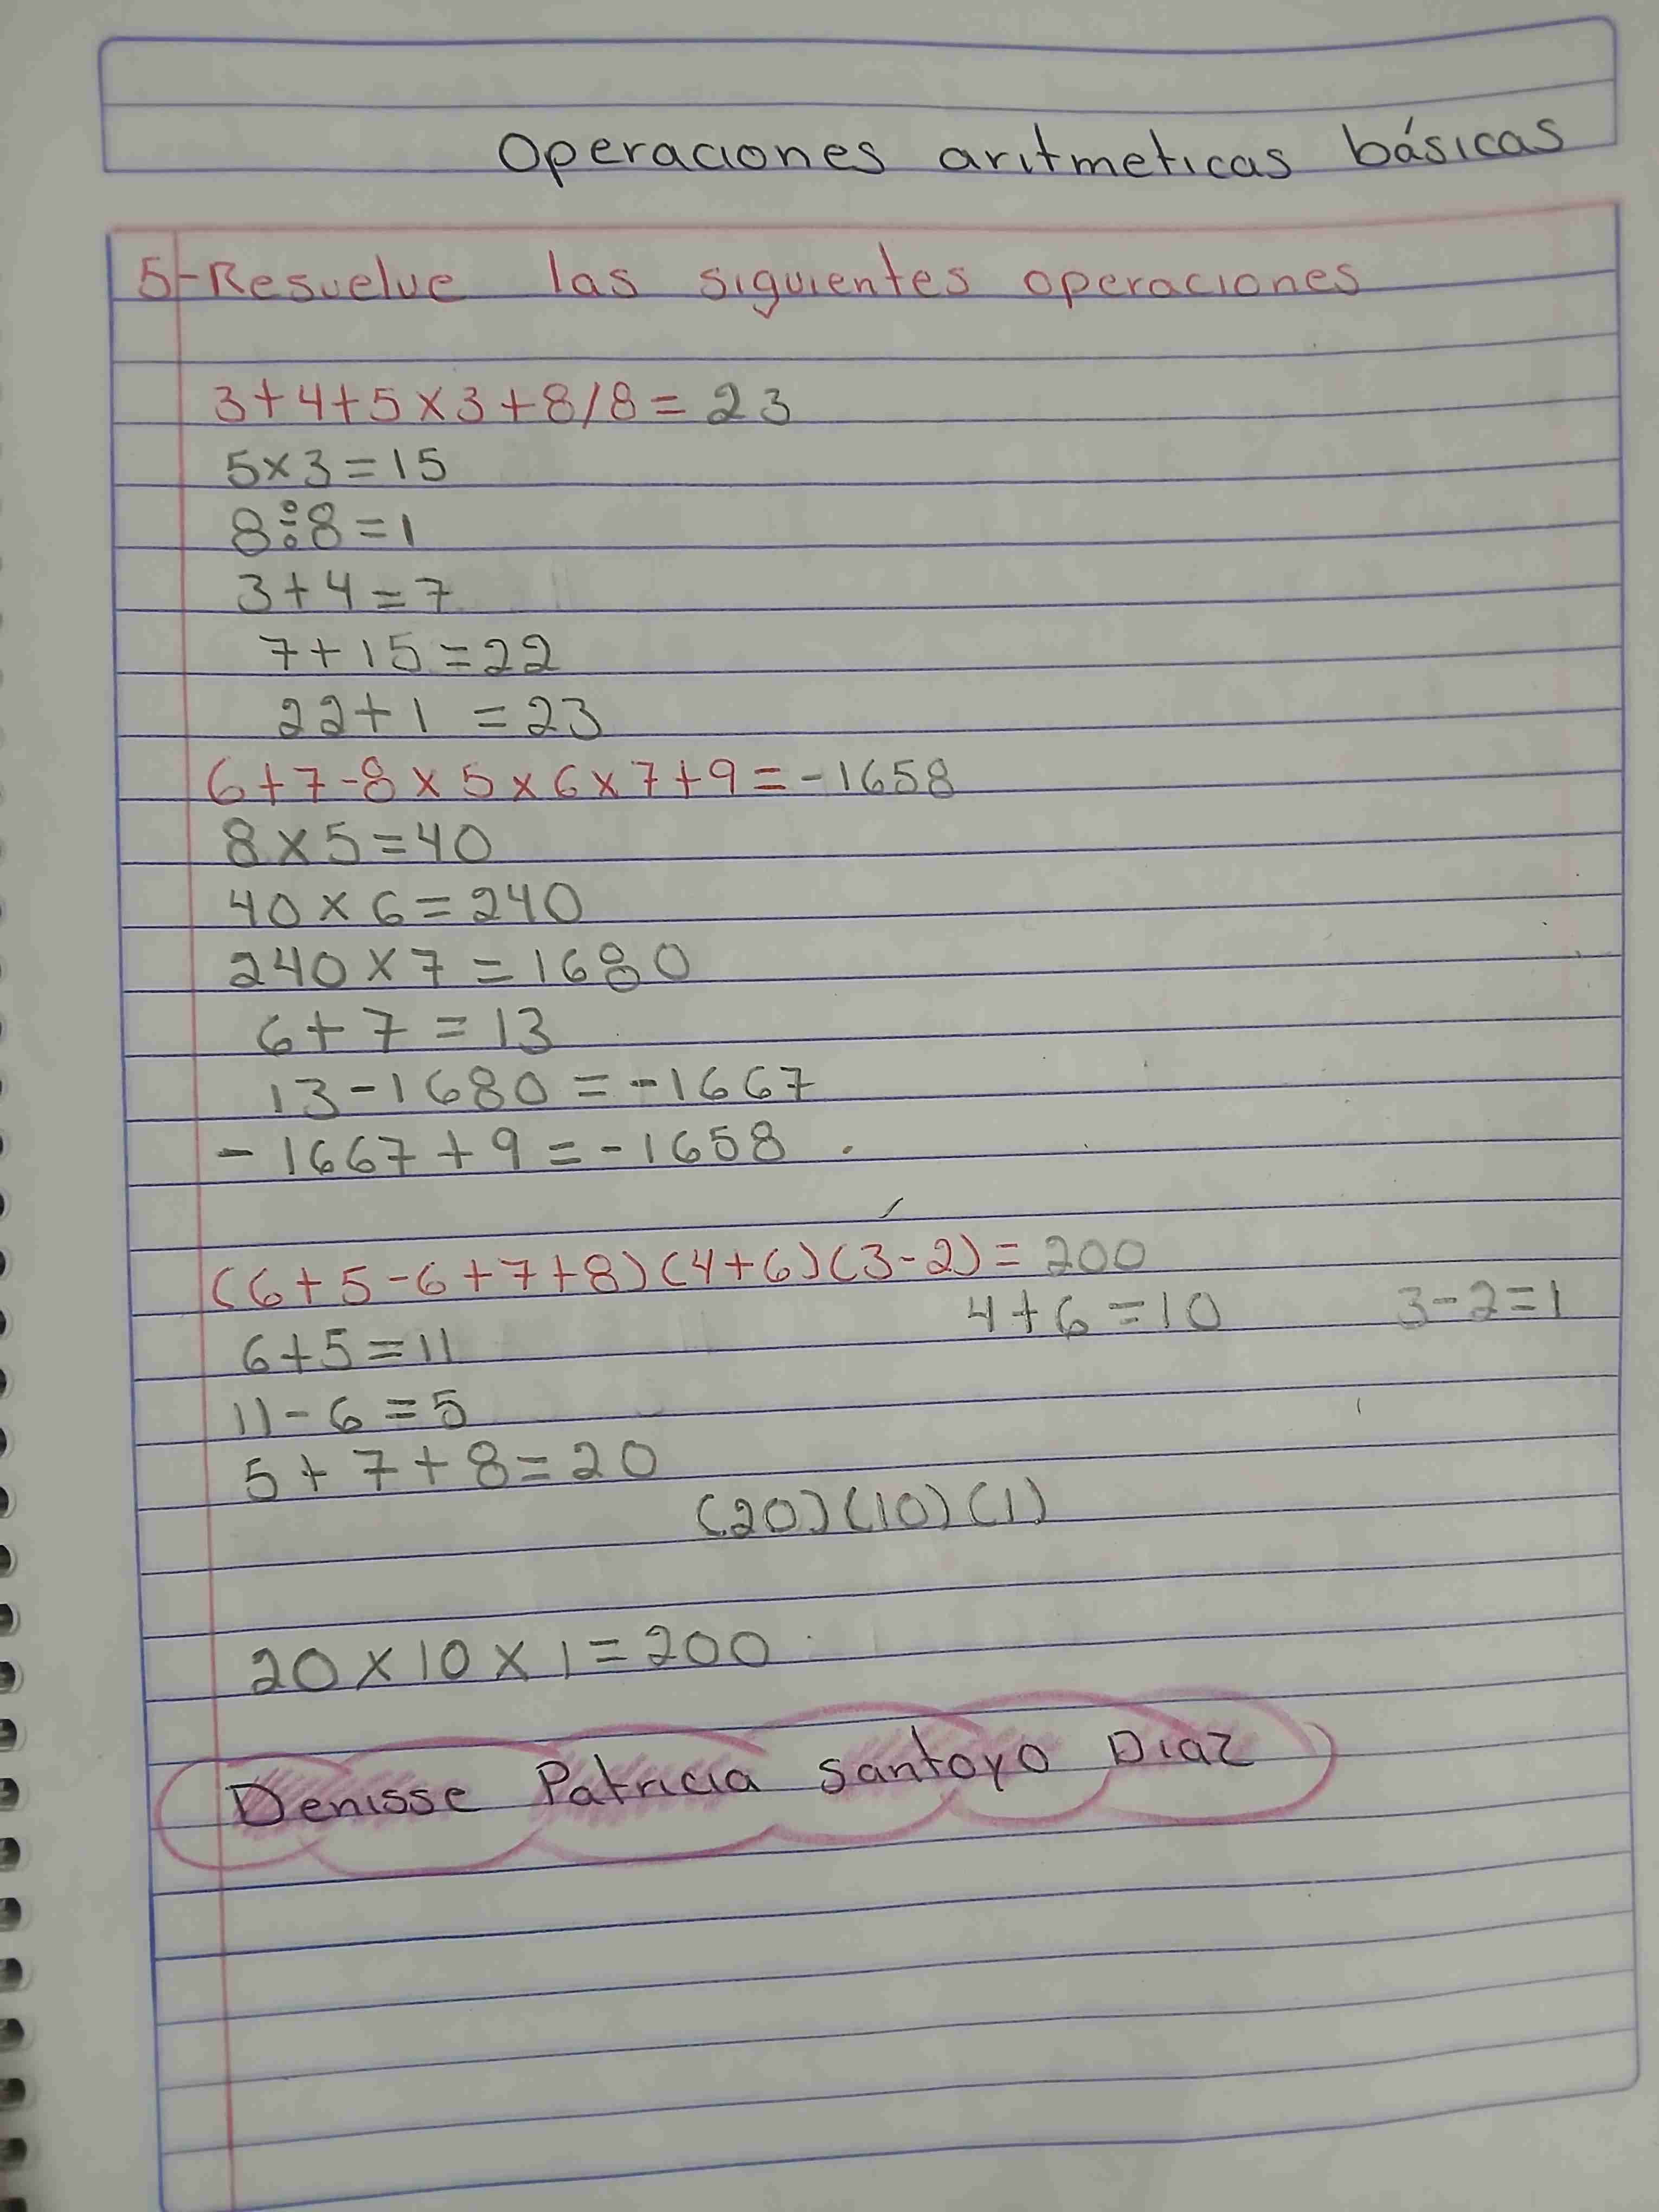 Operaciones aritmeticas básicas
5-Resuelve las siguientes operaciones
3+4+5×3+8/8=23
5×3=15
8÷8=1
3+4=7
7+15=22
22+1=23
6+7-8×5×6×7+9=-1658
8×5=40
40×6=240
240×7=1680
6+7=13
13-1680=-1667
-1667+9=-1658
(6+5-6+7+8)(4+6)(3-2)=200
4+6=10 3-2=1
6+5=11
11-6=5
5+7+8=20
(20)(10)(1)
20×10×1=200
Denisse Patricia Santoyo Diaz